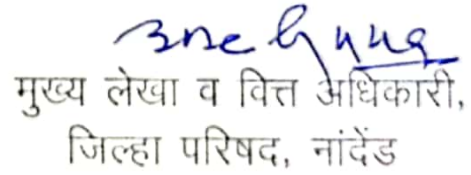 मुख्य लेखा व वित्त अधिकारी,
जिल्हा परिषद, नांदेंड